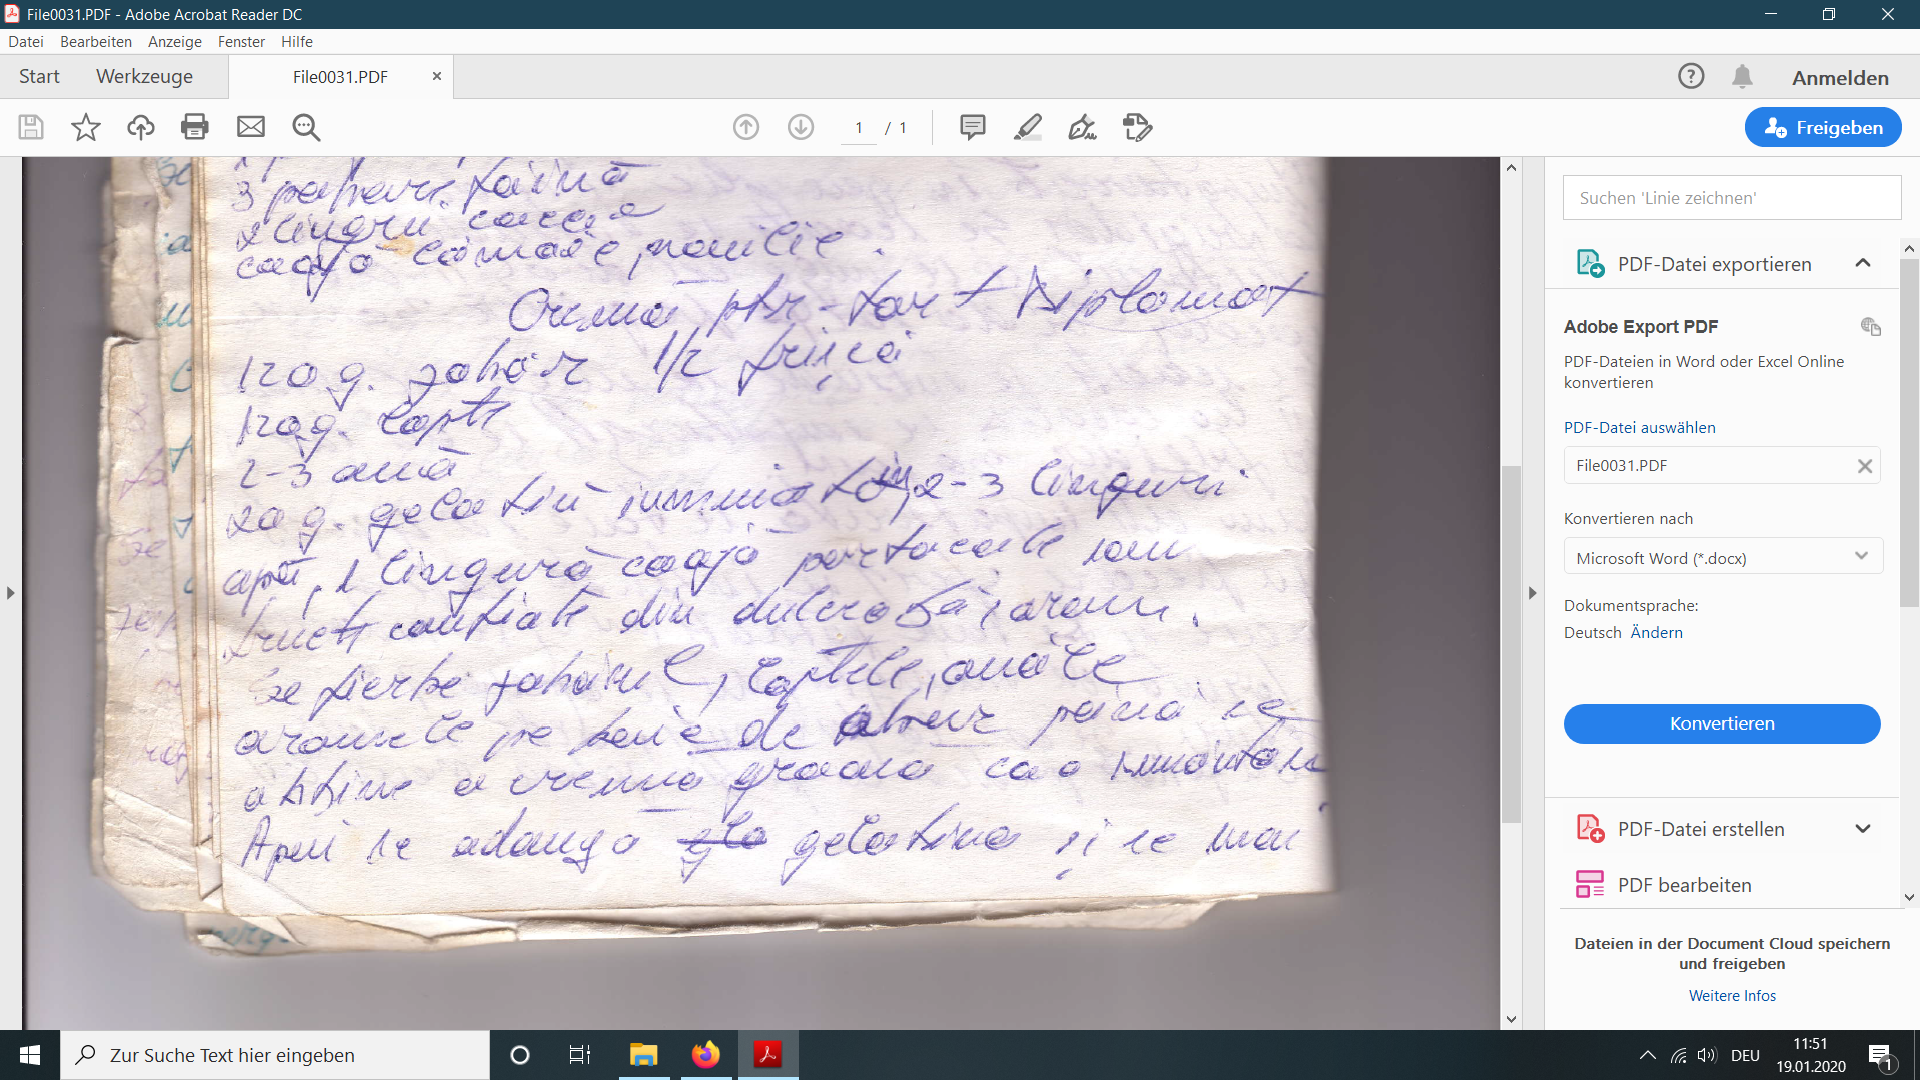 File0031.PDF - Adobe Acrobat Reader DC
Datei Bearbeiten Anzeige Fenster Hilfe
Start Werkzeuge File0031.PDF Anmelden
1 / 1 Freigeben
3 pahare făină
2 linguri cacao
coajă lămâie, vanilie.
Cremă ptr. tort Diplomat
120 g. zahăr 1/2 frișcă
120 g. lapte
2-3 ouă
20 g. gelatină înmuiată în 2-3 linguri
apă, 1 lingură coajă portocale sau
fructe confiate din dulceață, arome.
Se fierbe zahărul, laptele, ouăle
aromele pe baie de abur până se
obține o cremă groasă ca o smântână
Apoi se adaugă gelatina și se mai
Suchen 'Linie zeichnen'
PDF-Datei exportieren
Adobe Export PDF
PDF-Dateien in Word oder Excel Online
konvertieren
PDF-Datei auswählen
File0031.PDF
Konvertieren nach
Microsoft Word (*.docx)
Dokumentsprache:
Deutsch Ändern
Konvertieren
PDF-Datei erstellen
PDF bearbeiten
Dateien in der Document Cloud speichern
und freigeben
Weitere Infos
Zur Suche Text hier eingeben
DEU
11:51
19.01.2020
1